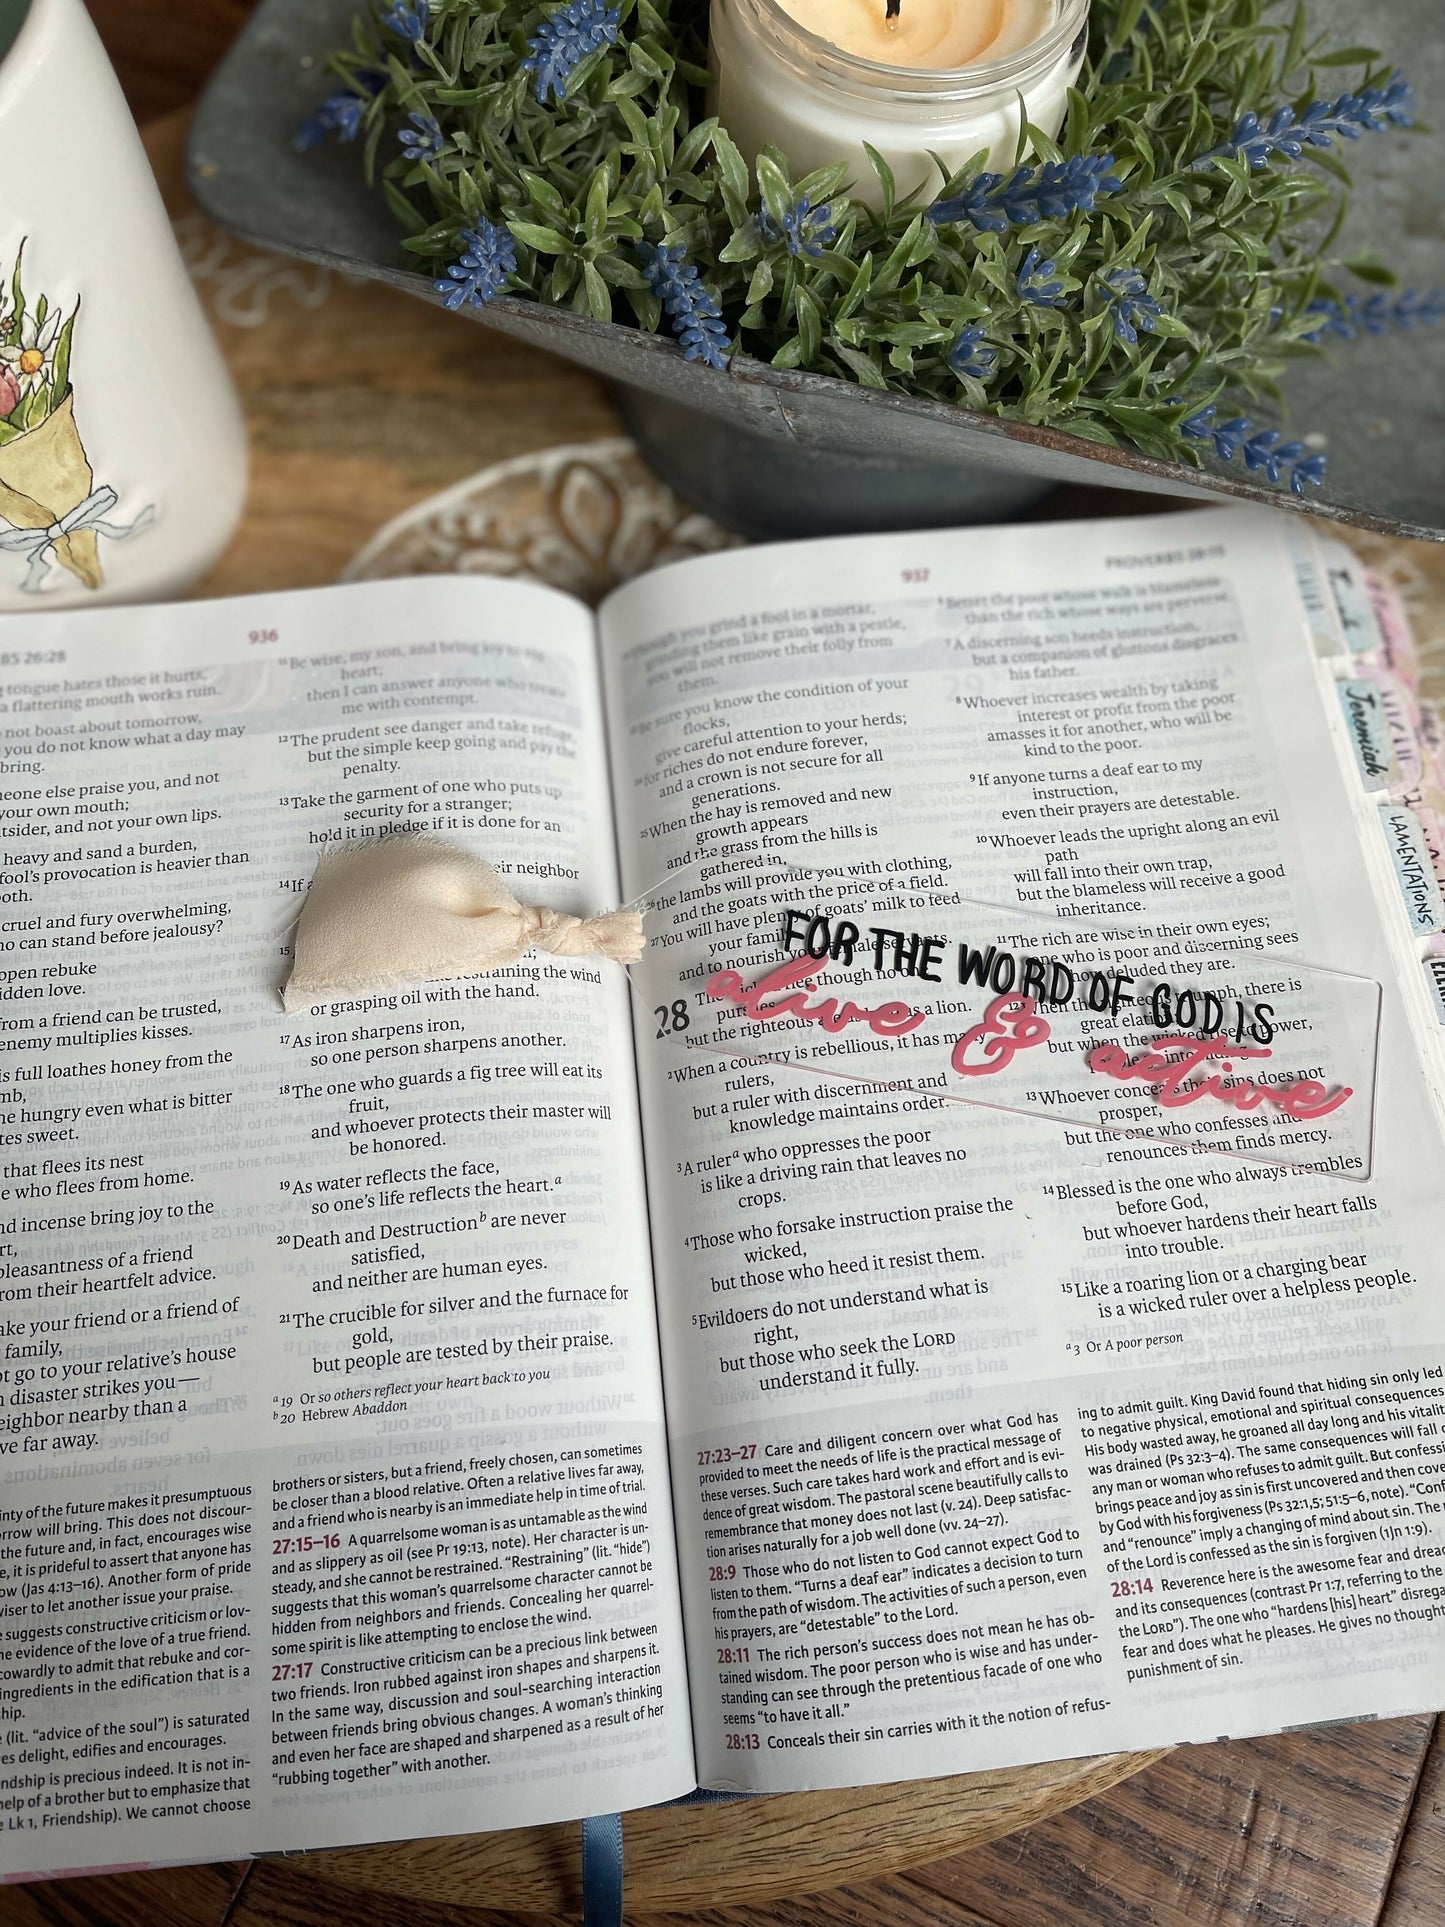 936
BS 26:28
tongue hates those it hurts,
a flattering mouth works ruin.
not boast about tomorrow,
you do not know what a day may
bring.
eone else praise you, and not
your own mouth;
tsider, and not your own lips.
heavy and sand a burden,
fool's provocation is heavier than
oth.
cruel and fury overwhelming,
ho can stand before jealousy?
open rebuke
idden love.
from a friend can be trusted,
enemy multiplies kisses.
is full loathes honey from the
mb,
he hungry even what is bitter
tes sweet.
that flees its nest
e who flees from home.
nd incense bring joy to the
rt,
pleasantness of a friend
rom their heartfelt advice.
ake your friend or a friend of
family,
ot go to your relative's house
n disaster strikes you—
eighbor nearby than a
ve far away.
11 Be wise, my son, and bring joy to my
heart;
then I can answer anyone who treats
me with contempt.
12 The prudent see danger and take refuge,
but the simple keep going and pay the
penalty.
13 Take the garment of one who puts up
security for a stranger;
hold it in pledge if it is done for an
eir neighbor
14 If a
15
restraining the wind
or grasping oil with the hand.
17 As iron sharpens iron,
so one person sharpens another.
18 The one who guards a fig tree will eat its
fruit,
and whoever protects their master will
be honored.
19 As water reflects the face,
so one's life reflects the heart.a
20 Death and Destruction b are never
satisfied,
and neither are human eyes.
21 The crucible for silver and the furnace for
gold,
but people are tested by their praise.
a 19 Or so others reflect your heart back to you
b 20 Hebrew Abaddon
inty of the future makes it presumptuous
rrow will bring. This does not discour-
the future and, in fact, encourages wise
e, it is prideful to assert that anyone has
ow (Jas 4:13–16). Another form of pride
wiser to let another issue your praise.
e suggests constructive criticism or lov-
he evidence of the love of a true friend.
cowardly to admit that rebuke and cor-
ingredients in the edification that is a
hip.
e (lit. "advice of the soul") is saturated
es delight, edifies and encourages.
ndship is precious indeed. It is not in-
help of a brother but to emphasize that
e Lk 1, Friendship). We cannot choose
brothers or sisters, but a friend, freely chosen, can sometimes
be closer than a blood relative. Often a relative lives far away,
and a friend who is nearby is an immediate help in time of trial.
27:15–16 A quarrelsome woman is as untamable as the wind
and as slippery as oil (see Pr 19:13, note). Her character is un-
steady, and she cannot be restrained. "Restraining" (lit. "hide")
suggests that this woman's quarrelsome character cannot be
hidden from neighbors and friends. Concealing her quarrel-
some spirit is like attempting to enclose the wind.
27:17 Constructive criticism can be a precious link between
two friends. Iron rubbed against iron shapes and sharpens it.
In the same way, discussion and soul-searching interaction
between friends bring obvious changes. A woman's thinking
and even her face are shaped and sharpened as a result of her
"rubbing together" with another.
937
PROVERBS 28:15
though you grind a fool in a mortar,
grinding them like grain with a pestle,
you will not remove their folly from
them.
Be sure you know the condition of your
flocks,
give careful attention to your herds;
for riches do not endure forever,
and a crown is not secure for all
generations.
25 When the hay is removed and new
growth appears
and the grass from the hills is
gathered in,
26 the lambs will provide you with clothing,
and the goats with the price of a field.
27 You will have plenty of goats' milk to feed
your family
and to nourish your female servants.
28 The wicked flee though no one
pursues,
but the righteous are as bold as a lion.
2 When a country is rebellious, it has many
rulers,
but a ruler with discernment and
knowledge maintains order.
3 A ruler a who oppresses the poor
is like a driving rain that leaves no
crops.
4 Those who forsake instruction praise the
wicked,
but those who heed it resist them.
5 Evildoers do not understand what is
right,
but those who seek the LORD
understand it fully.
6 Better the poor whose walk is blameless
than the rich whose ways are perverse.
7 A discerning son heeds instruction,
but a companion of gluttons disgraces
his father.
8 Whoever increases wealth by taking
interest or profit from the poor
amasses it for another, who will be
kind to the poor.
9 If anyone turns a deaf ear to my
instruction,
even their prayers are detestable.
10 Whoever leads the upright along an evil
path
will fall into their own trap,
but the blameless will receive a good
inheritance.
11 The rich are wise in their own eyes;
one who is poor and discerning sees
how deluded they are.
12 When the righteous triumph, there is
great elation;
but when the wicked rise to power,
people go into hiding.
13 Whoever conceals their sins does not
prosper,
but the one who confesses and
renounces them finds mercy.
14 Blessed is the one who always trembles
before God,
but whoever hardens their heart falls
into trouble.
15 Like a roaring lion or a charging bear
is a wicked ruler over a helpless people.
a 3 Or A poor person
FOR THE WORD OF GOD IS
alive & active
27:23–27 Care and diligent concern over what God has
provided to meet the needs of life is the practical message of
these verses. Such care takes hard work and effort and is evi-
dence of great wisdom. The pastoral scene beautifully calls to
remembrance that money does not last (v. 24). Deep satisfac-
tion arises naturally for a job well done (vv. 24–27).
28:9 Those who do not listen to God cannot expect God to
listen to them. "Turns a deaf ear" indicates a decision to turn
from the path of wisdom. The activities of such a person, even
his prayers, are "detestable" to the Lord.
28:11 The rich person's success does not mean he has ob-
tained wisdom. The poor person who is wise and has under-
standing can see through the pretentious facade of one who
seems "to have it all."
28:13 Conceals their sin carries with it the notion of refus-
ing to admit guilt. King David found that hiding sin only led
to negative physical, emotional and spiritual consequences
His body wasted away, he groaned all day long and his vitalit
was drained (Ps 32:3–4). The same consequences will fall o
any man or woman who refuses to admit guilt. But confessi
brings peace and joy as sin is first uncovered and then cove
by God with his forgiveness (Ps 32:1,5; 51:5–6, note). "Conf
and "renounce" imply a changing of mind about sin. The n
of the Lord is confessed as the sin is forgiven (1Jn 1:9).
28:14 Reverence here is the awesome fear and drea
and its consequences (contrast Pr 1:7, referring to the
the LORD"). The one who "hardens [his] heart" disrega
fear and does what he pleases. He gives no thought
punishment of sin.
Jeremiah
LAMENTATIONS